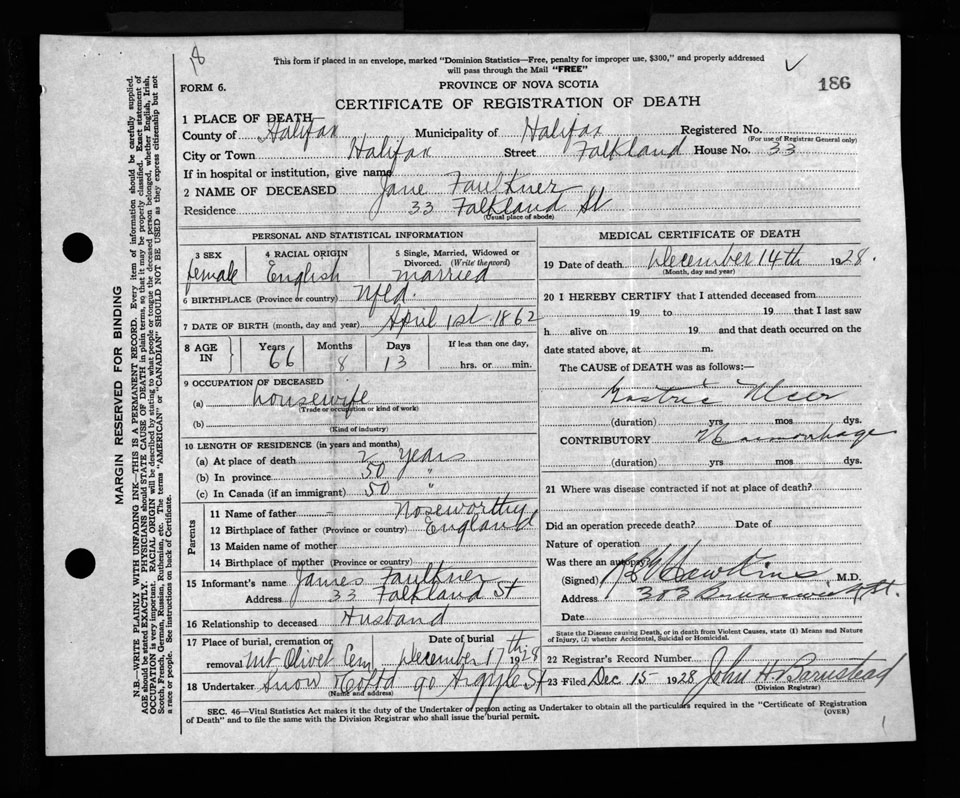 8
This form if placed in an envelope, marked "Dominion Statistics—Free, penalty for improper use, $300," and properly addressed
will pass through the Mail "FREE"
186
FORM 6.
PROVINCE OF NOVA SCOTIA
CERTIFICATE OF REGISTRATION OF DEATH
1 PLACE OF DEATH
County of Halifax Municipality of Halifax Registered No.
(For use of Registrar General only)
City or Town Halifax Street Falkland House No. 33
If in hospital or institution, give name
2 NAME OF DECEASED Jane Faulkner
Residence 33 Falkland St
(Usual place of abode)
MARGIN RESERVED FOR BINDING
N.B.—WRITE PLAINLY WITH UNFADING INK—THIS IS A PERMANENT RECORD. Every item of information should be carefully supplied.
AGE should be stated EXACTLY. PHYSICIANS should STATE CAUSE OF DEATH in plain terms, so that it may be properly classified. Exact statement of
OCCUPATION is very important. RACIAL ORIGIN will be described by stating to what people or tongue the deceased person belonged, whether English, Irish,
Scotch, French, German, Russian, Ruthenian, etc. The terms "AMERICAN" or "CANADIAN" SHOULD NOT BE USED as they express citizenship but not
a race or people. See instructions on back of Certificate.
PERSONAL AND STATISTICAL INFORMATION
3 SEX 4 RACIAL ORIGIN 5 Single, Married, Widowed or
Divorced. (Write the word)
female English married
6 BIRTHPLACE (Province or country) Nfld.
7 DATE OF BIRTH (month, day and year) April 1st 1862
8 AGE IN Years Months Days If less than one day,
66 8 13 hrs. or min.
9 OCCUPATION OF DECEASED
(a) housewife
(Trade or occupation or kind of work)
(b)
(Kind of industry)
10 LENGTH OF RESIDENCE (in years and months)
(a) At place of death 2 years
(b) In province 50 "
(c) In Canada (if an immigrant) 50 "
Parents
11 Name of father Noseworthy
12 Birthplace of father (Province or country) England
13 Maiden name of mother
14 Birthplace of mother (Province or country)
15 Informant's name James Faulkner
Address 33 Falkland St
16 Relationship to deceased Husband
17 Place of burial, cremation or Date of burial
removal Mt Olivet Cem. December 17th 1928
18 Undertaker Snow & Co Ltd 90 Argyle St
(Name and address)
MEDICAL CERTIFICATE OF DEATH
19 Date of death December 14th 1928.
(Month, day and year)
20 I HEREBY CERTIFY that I attended deceased from
19 to 19 that I last saw
h alive on 19 and that death occurred on the
date stated above, at m.
The CAUSE of DEATH was as follows:—
Gastric Ulcer
(duration) yrs mos dys.
CONTRIBUTORY Haemorrhage
(duration) yrs mos dys.
21 Where was disease contracted if not at place of death?
Did an operation precede death? Date of
Nature of operation
Was there an autopsy?
(Signed) Hawkins, M.D.
Address 303 Brunswick St.
Date
State the Disease causing Death, or in death from Violent Causes, state (1) Means and Nature
of Injury, (2) whether Accidental, Suicidal or Homicidal.
22 Registrar's Record Number
23 Filed Dec 15 1928 John H. Barnstead
(Division Registrar)
SEC. 46—Vital Statistics Act makes it duty of the Undertaker or person acting as Undertaker to obtain all the particulars required in the "Certificate of Registration
of Death" and to file the same with the Division Registrar who shall issue the burial permit.
(OVER)